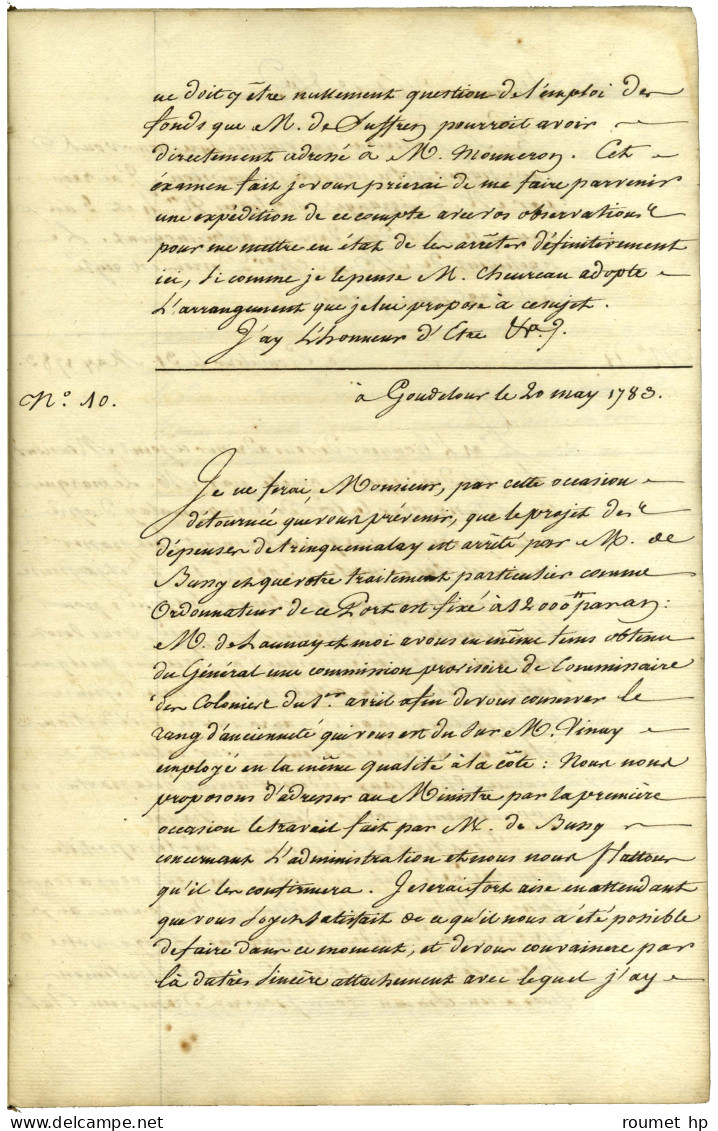 ne doit y être nullement question de l'emploi des
fonds que M. de Suffren pourroit avoir
directement adressé à M. Monneron. Cet
éxamen fait je vous prierai de me faire parvenir
une expédition de ce compte avec vos observations
pour me mettre en état de les arrêter définitivement
ici, si comme je le pense M. Chevreau adopte
L'arrangement que je lui propose à ce sujet.
J'ay L'honneur d'Etre &a.
N.° 10.
à Goudelour le 20 may 1783.
Je ne ferai, Monsieur, par cette occasion
détournée que vous prévenir, que le projet des
dépenses de trinquemalay est arrêté par M. de
Bussy et que votre traitement particulier comme
Ordonnateur de ce Port est fixé à 12000tt par an:
M. de Launay et moi avons en même tems obtenu
du Général une commission provisoire de Commissaire
des Colonies du 1er avril afin de vous conserver le
rang d'ancienneté qui vous est du sur M. Vinay
employé en la même qualité à la côte: Nous nous
proposons d'adresser au Ministre par la première
occasion le travail fait par M. de Bussy
concernant L'administration et nous nous flattons
qu'il les confirmera. Je serai fort aise en attendant
que vous soyez satisfait de ce qu'il nous a été possible
de faire dans ce moment, et de vous convaincre par
là du très sincère attachement avec lequel j'ay
routset hp